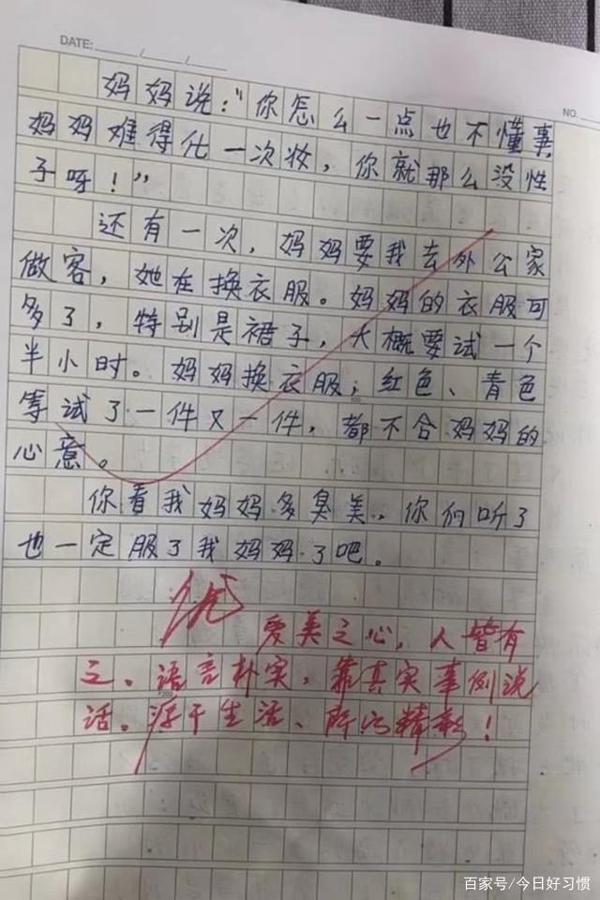 DATE:
NO.
妈妈说:“你怎么一点也不懂事,
妈妈难得化一次妆,你就那么没性
子呀!”
还有一次,妈妈要我去外公家
做客,她在换衣服。妈妈的衣服可
多了,特别是裙子,大概要试一个
半小时。妈妈换衣服,红色、青色
等试了一件又一件,都不合妈妈的
心意。
你看我妈妈多臭美,你们听了
也一定服了我妈妈了吧。
优
爱美之心,人皆有
之。语言朴实,靠真实事例说
话。源于生活、所以精彩!
百家号/今日好习惯